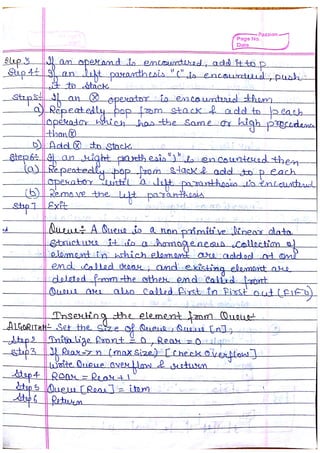 Page No.
Date
Step 3 If an operand is encountered, add it to p
Step 4: If an left paranthesis "(" is encountered, push
it to stack
Step 5: If an ⊗ operator is encountered them
a) Repeatedly pop from stack & add to p each
operator which has the same or high precedence
than ⊗
b) Add ⊗ to stack
Step 6: If an right parthesis ")" is encountered then
(a) Repeatedly pop from stack & add to p each
operator until a left paranthesis is encountered
(b) Remove the left paranthesis
Step 7 Exit
Queue:- A Queue is a non primitive linear data
structure it is a homogeneous collection of
element in which element are added at one
end called rear, and existing element are
deleted from the other end called front
Queue are also called First in First out (FIFO)
Inserting the element from Queue
ALGORITHM:- Set the size of Queue: Queue [n];
Step 2 Initialize front = 0, Rear = 0
Step 3 If Rear >= n (max size) [check overflow]
write Queue overflow & return
Step 4 Rear = Rear + 1
Step 5 Queue [Rear] = item
Step 6 Return